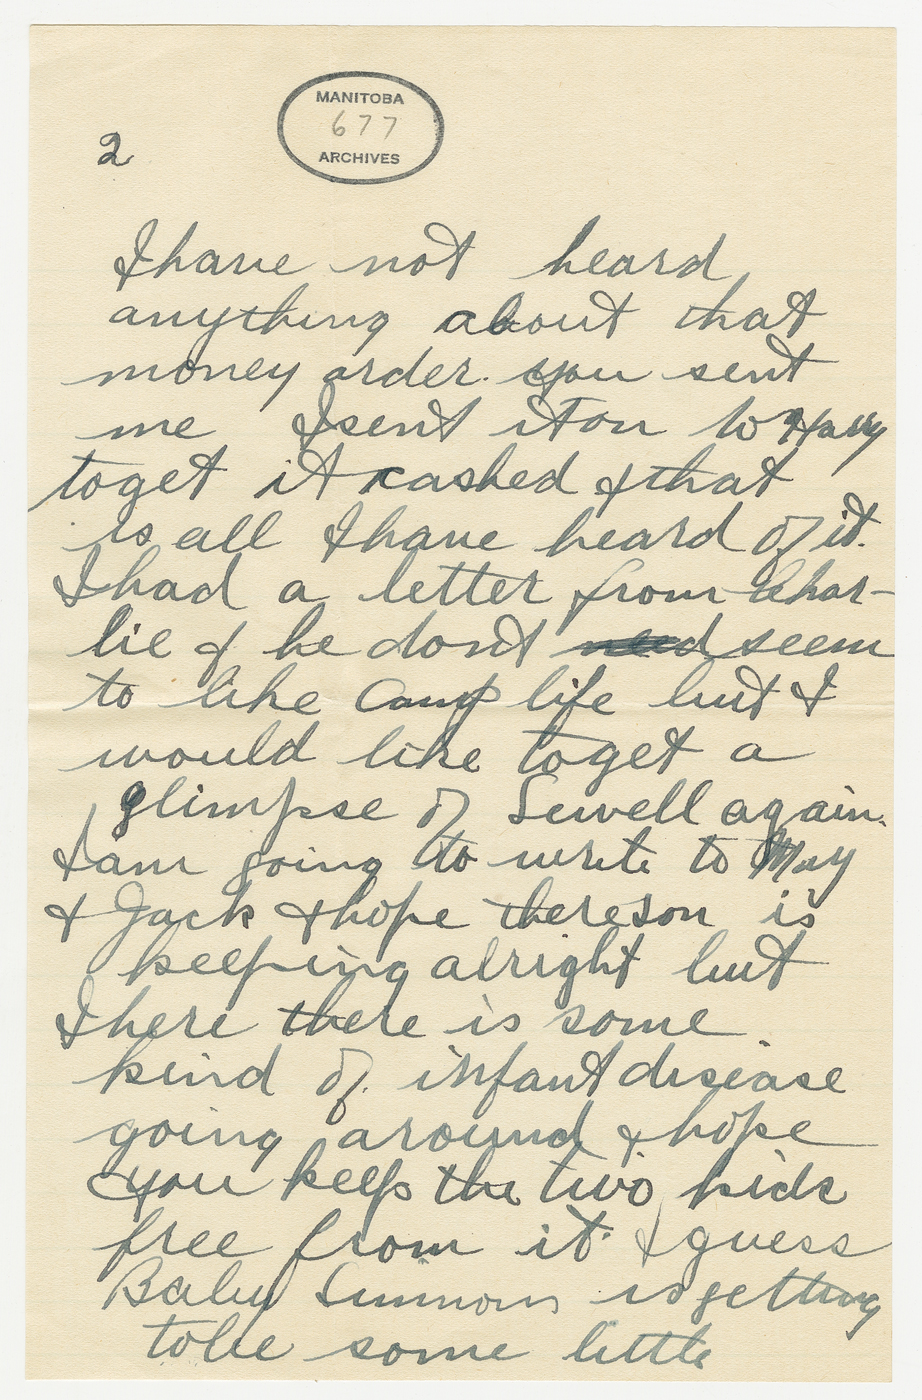 MANITOBA
677
ARCHIVES
2
I have not heard
anything about that
money order. you sent
me I sent it on to Harry
to get it cashed & that
is all I have heard of it.
I had a letter from Char-
lie & he dont seem
to like Camp life but I
would like to get a
glimpse of Sewell again.
I am going to write to May
& Jack & hope thereson is
keeping alright but
I here there is some
kind of infant disease
going around & hope
you keep the two kids
free from it. I guess
Baby Simmons is getting
to be some little